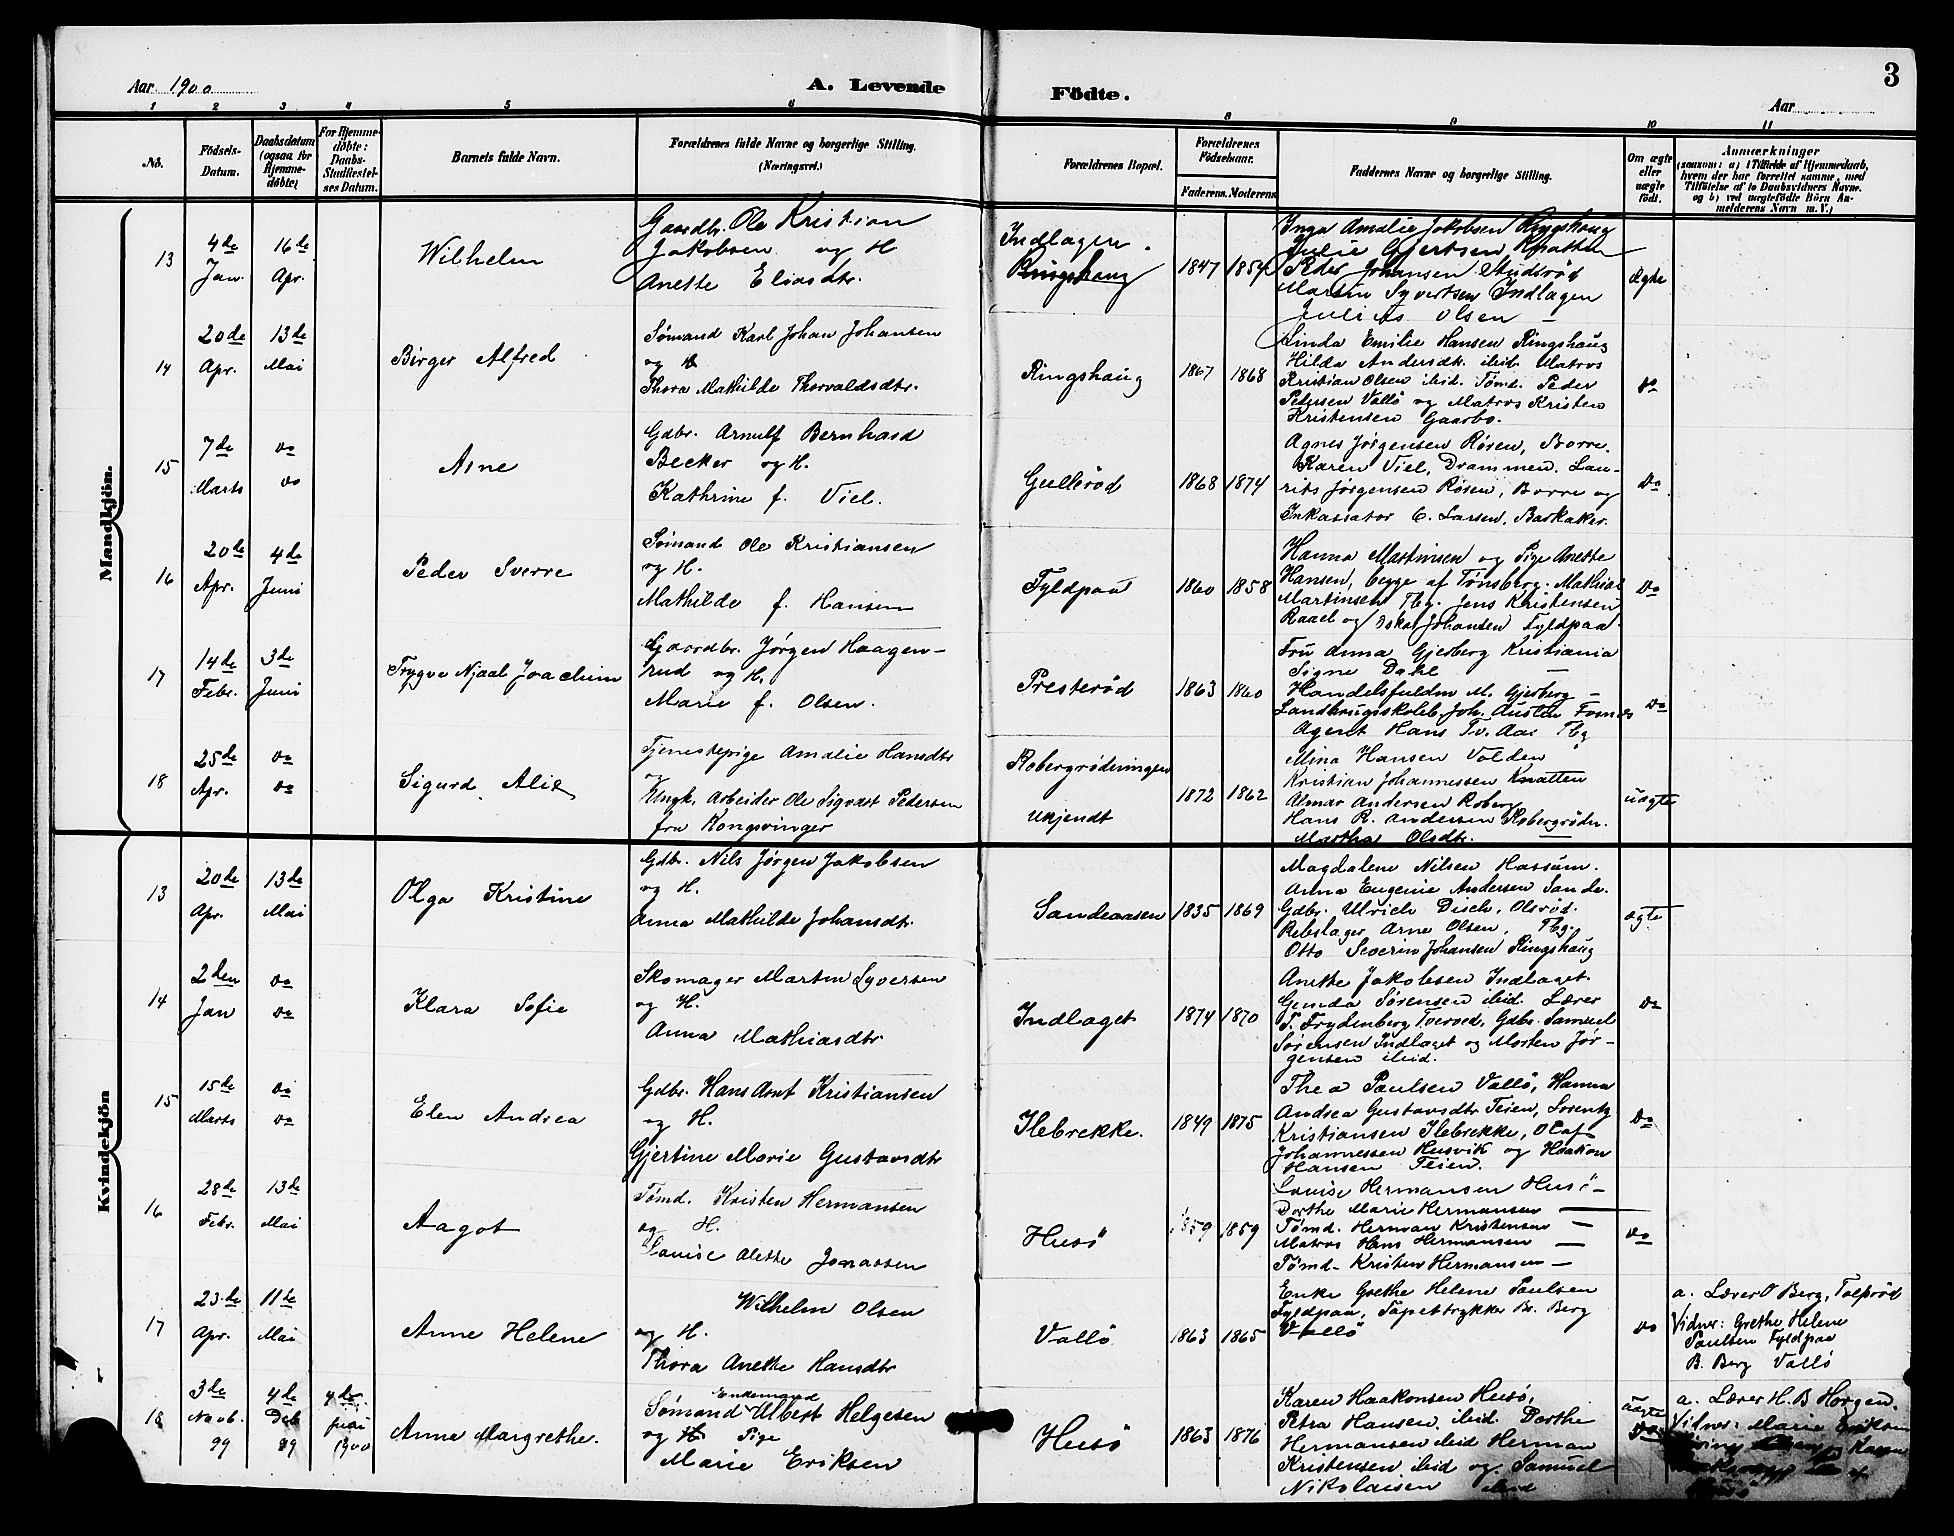 Aar 1900
A. Levende Födte.
Aar
3
1 2 3 4 5 6 8 9 10 11
No.
Födsels-Datum.
Daabsdatum (ogsaa for Hjemme-döbte)
For Hjemme-döbte: Daabs-Stadfæstel-ses Datum.
Barnets fulde Navn.
Forældrenes fulde Navne og borgerlige Stilling. (Næringsvei.)
Forældrenes Bopæl.
Forældrenes Födselsaar.
Faderens. Moderens
Faddernes Navne og borgerlige Stilling.
Om ægte eller uægte födt.
Anmærkninger
(saasom: a) i Tilfælde af Hjemmedaab,
hvem der har forrettet samme, med
Tilföielse af to Daabsvidners Navne.
og b) ved uægtefödte Börn An-
melderens Navn m. V.)
Mandkjön.
13
4de Jan.
16de Apr.
Wilhelm
Gaardbr. Ole Kristian
Jakobsen og H
Anette Eliasdtr.
Indlagen.
Ringshaug
1847 1854
Inga Amalie Jakobsen Ringshaug
Julie Gjertsen Knatten
Peder Johansen Studsrød
Martin Syvertsen Indlagen
Julius Olsen —
Ægte
14
20de Apr.
13de Mai
Birger Alfred
Sømand Karl Johan Johansen
og H
Thora Mathilde Thorvaldsdtr.
Ringshaug
1867 1868
Linda Emilie Hansen Ringshaug
Hilda Andersdtr. ibid. Matros
Kristian Olsen ibid. Tømd. Peder
Petersen Vallö og Matros Kristen
Kristensen Gaarbo.
do
15
7de Marts
do do
Arne
Gdbr. Arnulf Bernhard
Becker og H.
Kathrine f. Viel.
Gullerød
1868 1874
Agnes Jørgensen Røsen, Borre.
Karen Viel, Drammen. Lau-
rits Jørgensen Røsen, Borre og
Inkassator C. Larsen, Barkaker.
do
16
20de Apr.
4de Juni
Peder Sverre
Sømand Ole Kristiansen
og H.
Mathilde f. Hansen
Fyldpaa
1860 1858
Hanna Martinsen og Pige Anette
Hansen, begge af Tønsberg. Mathias
Martinsen Tbg. Jens Kristensen
Raael og Oskar Johansen Fyldpaa.
do
17
14de Febr.
3de Juni
Trygve Njaal Joachim
Gaardbr. Jørgen Haagen-
rud og H.
Marie f. Olsen.
Presterød
1863 1860
Fru Anna Gjesberg Kristiania
Signe Dahl —
Handelsfuldm M. Gjesberg —
Landbrugsskoleb. Joh. Austen
Agent Hans Tv. Aas Tbg
do
18
25de Apr.
do do
Sigurd Alie
Tjenestepige Amalie Hansdtr
og
Ungk. Arbeider Ole Sigvart Petersen
fra Kongsvinger
Robergrødningen
ukjendt
1872 1862
Mina Hansen Volden
Kristian Johannessen Knatten
Almar Andersen Roberg
Hans R. Andersen Robergrødn.
Martha Olsdtr. —
uægte
Kvindekjön
13
20de Apr.
13de Mai
Olga Kristine
Gdbr. Nils Jørgen Jakobsen
og H.
Anna Mathilde Johansdtr.
Sandeaasen
1835 1869
Magdalene Nilsen Hassum.
Anna Eugenie Andersen Sande.
Gdbr. Ulrich Disch, Olsrød.
Rebslager Arne Olsen, Tbg.
Otto Severin Johansen Ringshaug
ægte
14
2den Jan
do do
Klara Sofie
Skomager Martin Syversen
og H.
Anna Mathiasdtr
Indlaget
1874 1870
Anette Jakobsen Indlaget.
Gunda Sørensen ibid. Lærer
P. Frydenberg Tveved, Gdbr. Samuel
Sørensen Indlaget og Morten Jør-
gensen ibid.
do
15
15de Marts
do do
Elen Andrea
Gdbr. Hans Arnt Kristiansen
og H.
Gjertine Marie Gustavsdtr
Ilebrekke.
1849 1875
Thea Paulsen Vallö, Hanna
Andrea Gustavsdtr Teien, Lorentz
Kristiansen Ilebrekke, Olaf
Johannessen Husvik og Haakon
Hansen Teien.
do
16
28de Febr.
13de Mai
Aagot
Tømd. Kristen Hermansen
og H.
Louise Olette Jonassen
Husö
1859 1859
Louise Hermansen Husö —
Dorthe Marie Hermansen —
Tømd. Herman Kristensen —
Matros Hans Hermansen —
Tømd. Kristen Hermansen —
do
17
23de Apr.
11te Mai
Anne Helene
Wilhelm Olsen
og H.
Thora Anette Hansdtr
Vallö
1863 1865
Enke Grethe Helene Paulsen
Fyldpaa, Tapettrykker Br. Berg
Vallö
do
a. Lærer O Berg, Tolprød
Vidner: Grethe Helene
Paulsen Fyldpaa
B. Berg Vallö
18
3de Novb. 99
4de Deb 99
4de juni 1900
Anna Margrethe.
Enkemand
Sømand Albert Helgesen
og H Pige
Marie Eriksen
Husö
1863 1876
Karen Haakonsen Husö,
Petra Hansen, ibid. Dorthe
Hermansen ibid Herman
Kristensen ibid og Samuel
Nikolaisen ibid
uægte
do
a. Lærer H. B Horgen.
Vidner: Marie Eriksen